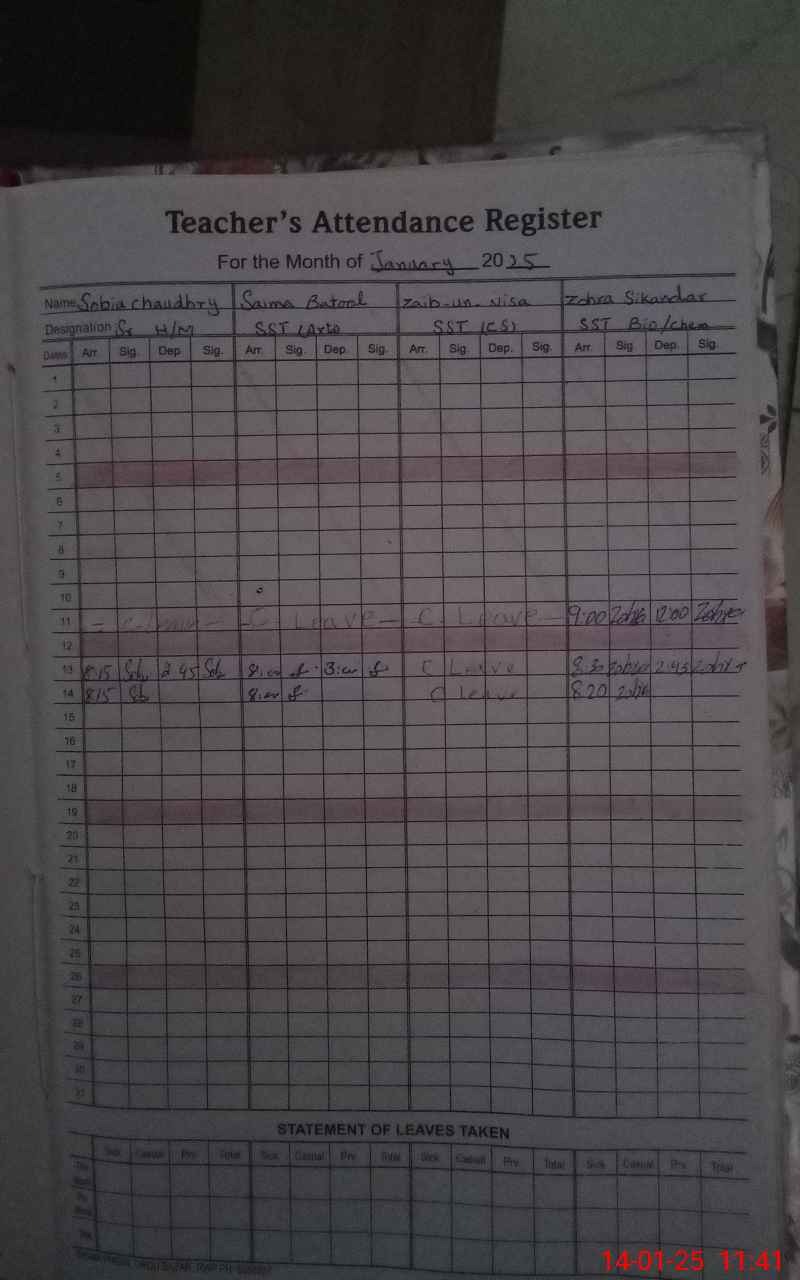 Teacher's Attendance Register
For the Month of January 2025
Name Sobia Chaudhry Saima Batool Zaib-un-Nisa Zohra Sikandar
Designation Sr H/M SST (Arts SST (CS) SST Bio/chem
Dates Arr. Sig. Dep. Sig. Arr. Sig. Dep. Sig. Arr. Sig. Dep. Sig. Arr. Sig. Dep. Sig.
1
2
3
4
5
6
7
8
9
10
11 C Leave C Leave 9:00 Zohra 12:00 Zohra
12
13 8:15 Sob 2:45 Sob 8:00 3:00 C Leave 8:30 Zohra 2:45 Zohra
14 8:15 8:00 C leave 8:20 Zohra
15
16
17
18
19
20
21
22
23
24
25
26
27
28
29
30
31
STATEMENT OF LEAVES TAKEN
Sick Casual Prv. Total Sick Casual Prv. Total Sick Casual Prv. Total Sick Casual Prv. Total
14-01-25 11:41